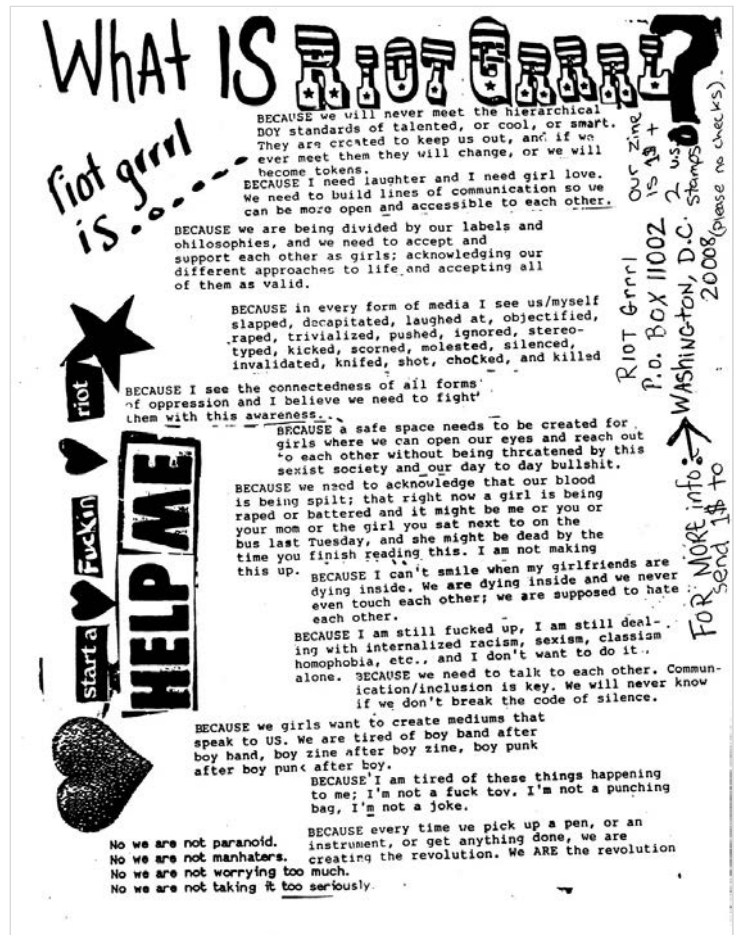 WhAt IS RIOT GRRRL?
riot grrrl
is........
BECAUSE we will never meet the hierarchical
BOY standards of talented, or cool, or smart.
They are created to keep us out, and if we
ever meet them they will change, or we will
become tokens.
BECAUSE I need laughter and I need girl love.
We need to build lines of communication so we
can be more open and accessible to each other.
BECAUSE we are being divided by our labels and
philosophies, and we need to accept and
support each other as girls; acknowledging our
different approaches to life and accepting all
of them as valid.
BECAUSE in every form of media I see us/myself
slapped, decapitated, laughed at, objectified,
raped, trivialized, pushed, ignored, stereo-
typed, kicked, scorned, molested, silenced,
invalidated, knifed, shot, chocked, and killed
BECAUSE I see the connectedness of all forms
of oppression and I believe we need to fight
them with this awareness...
BECAUSE a safe space needs to be created for
girls where we can open our eyes and reach out
to each other without being threatened by this
sexist society and our day to day bullshit.
BECAUSE we need to acknowledge that our blood
is being spilt; that right now a girl is being
raped or battered and it might be me or you or
your mom or the girl you sat next to on the
bus last Tuesday, and she might be dead by the
time you finish reading this. I am not making
this up.
BECAUSE I can't smile when my girlfriends are
dying inside. We are dying inside and we never
even touch each other; we are supposed to hate
each other.
BECAUSE I am still fucked up, I am still deal-
ing with internalized racism, sexism, classism
homophobia, etc., and I don't want to do it
alone.
BECAUSE we need to talk to each other. Commun-
ication/inclusion is key. We will never know
if we don't break the code of silence.
BECAUSE we girls want to create mediums that
speak to US. We are tired of boy band after
boy band, boy zine after boy zine, boy punk
after boy punk after boy.
BECAUSE I am tired of these things happening
to me; I'm not a fuck toy. I'm not a punching
bag, I'm not a joke.
BECAUSE every time we pick up a pen, or an
instrument, or get anything done, we are
creating the revolution. We ARE the revolution
No we are not paranoid.
No we are not manhaters.
No we are not worrying too much.
No we are not taking it too seriously.
start a Fuckin riot
HELP ME
FOR MORE info:
send 1$ to
RIOT Grrrl
P.O. BOX 11002
WAShiNGtON, D.C.
20008
our zine
is 1$ +
2 u.s.
stamps
(please no checks).